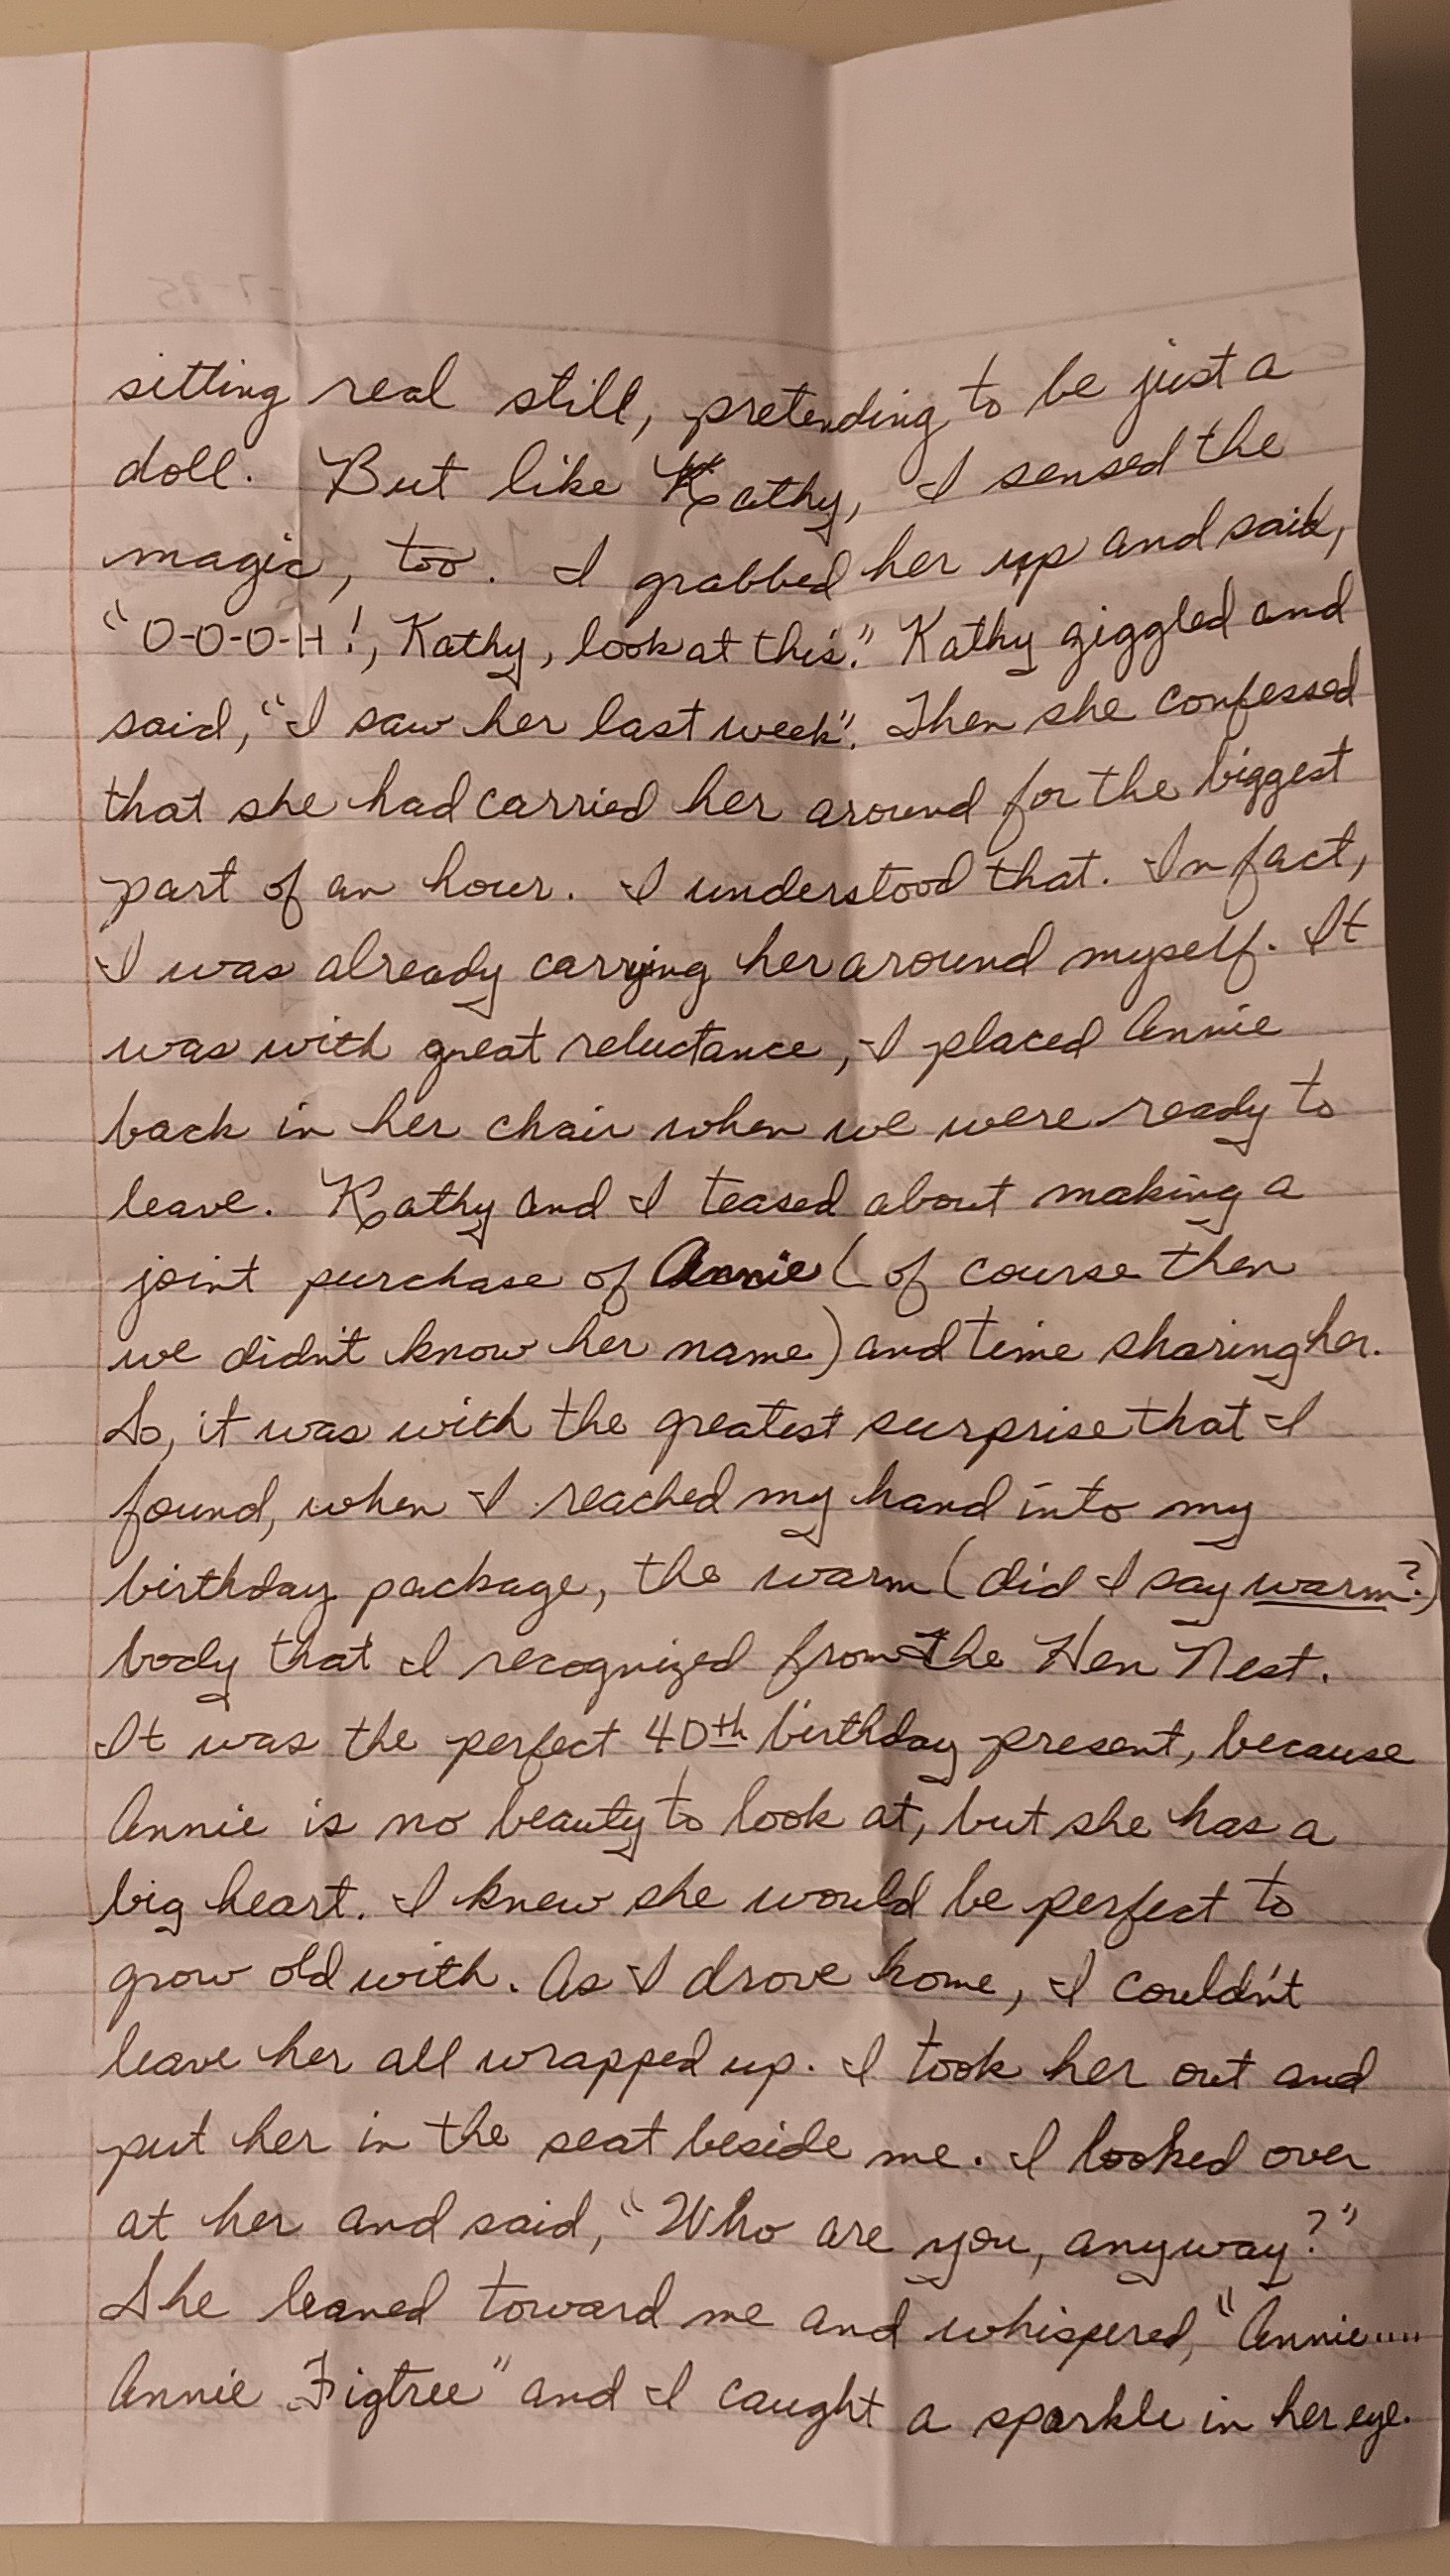 sitting real still, pretending to be just a
doll. But like Kathy, I sensed the
magic, too. I grabbed her up and said,
"O-O-O-H!, Kathy, look at this." Kathy giggled and
said, "I saw her last week". Then she confessed
that she had carried her around for the biggest
part of an hour. I understood that. In fact,
I was already carrying her around myself. It
was with great reluctance, I placed Annie
back in her chair when we were ready to
leave. Kathy and I teased about making a
joint purchase of Annie (of course then
we didn't know her name) and time sharing her.
So, it was with the greatest surprise that I
found, when I reached my hand into my
birthday package, the warm (did I say warm?)
body that I recognized from the Hen Nest.
It was the perfect 40th birthday present, because
Annie is no beauty to look at, but she has a
big heart. I knew she would be perfect to
grow old with. As I drove home, I couldn't
leave her all wrapped up. I took her out and
put her in the seat beside me. I looked over
at her and said, "Who are you, anyway?"
She leaned toward me and whispered, "Annie....
Annie Figtree" and I caught a sparkle in her eye.